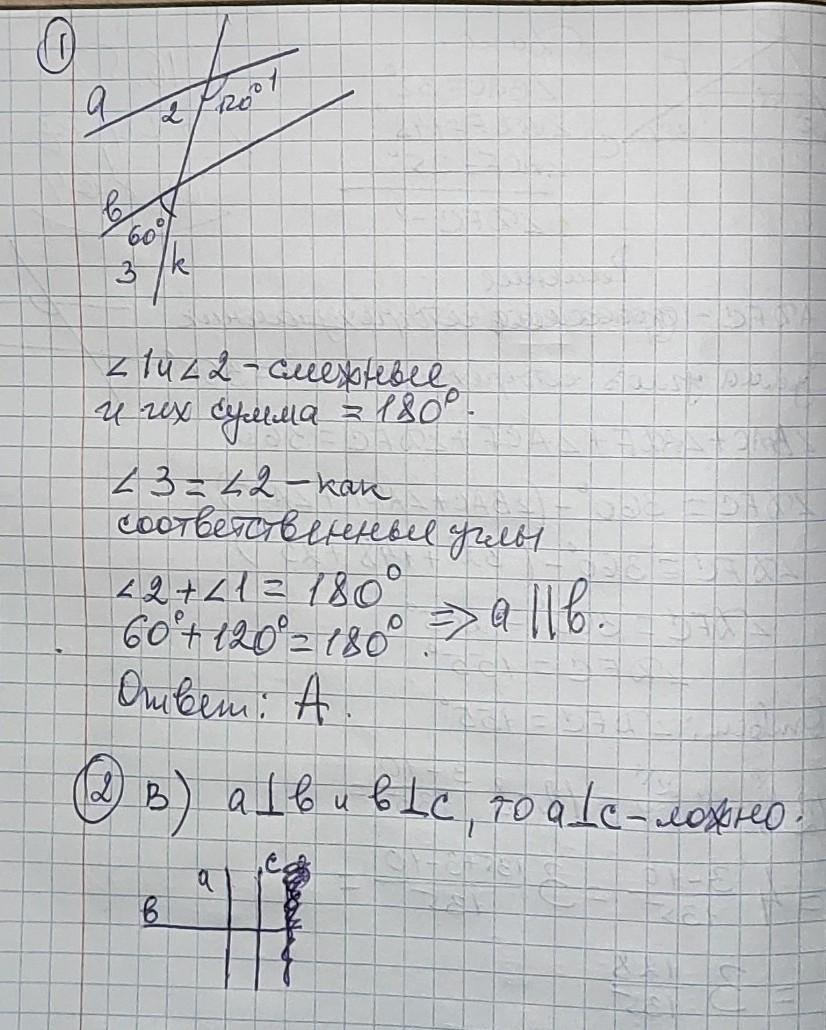 1
a
2 120° 1
в
60°
3 к
∠1 и ∠2 - смежные
и их сумма = 180°.
∠3 = ∠2 - как
соответственные углы
∠2 + ∠1 = 180°
60° + 120° = 180° ⇒ a || в.
Ответ: А.
2 В) a⊥в и в⊥с, то a⊥с - ложно.
a с
в